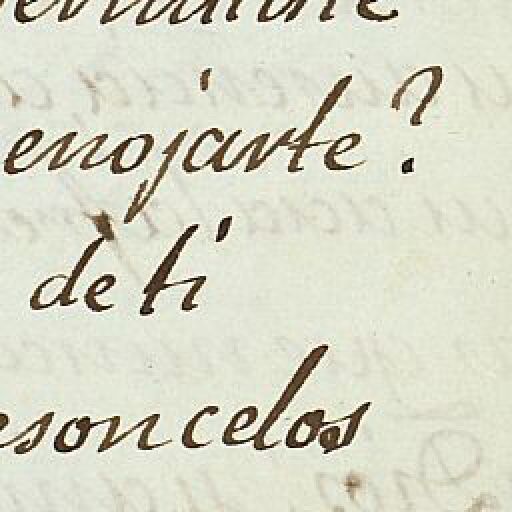 enojarte?
dè ti
eson celos